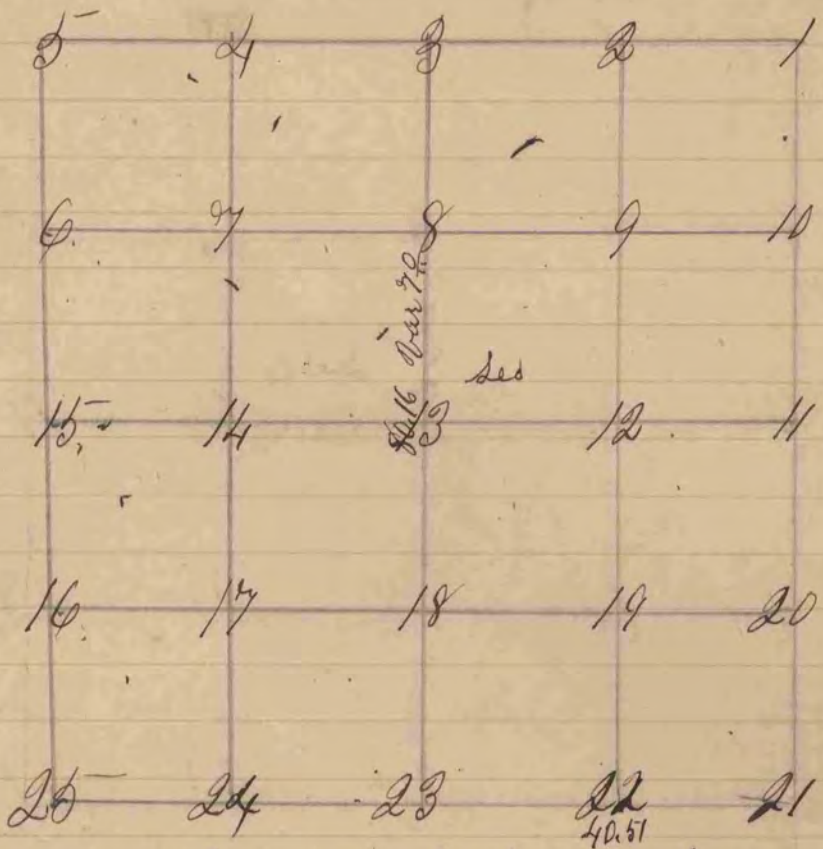 5 4 3 2 1
6 7 8 9 10
80.16 Var 7°
Sec
15 14 13 12 11
16 17 18 19 20
25 24 23 22 21
40.51